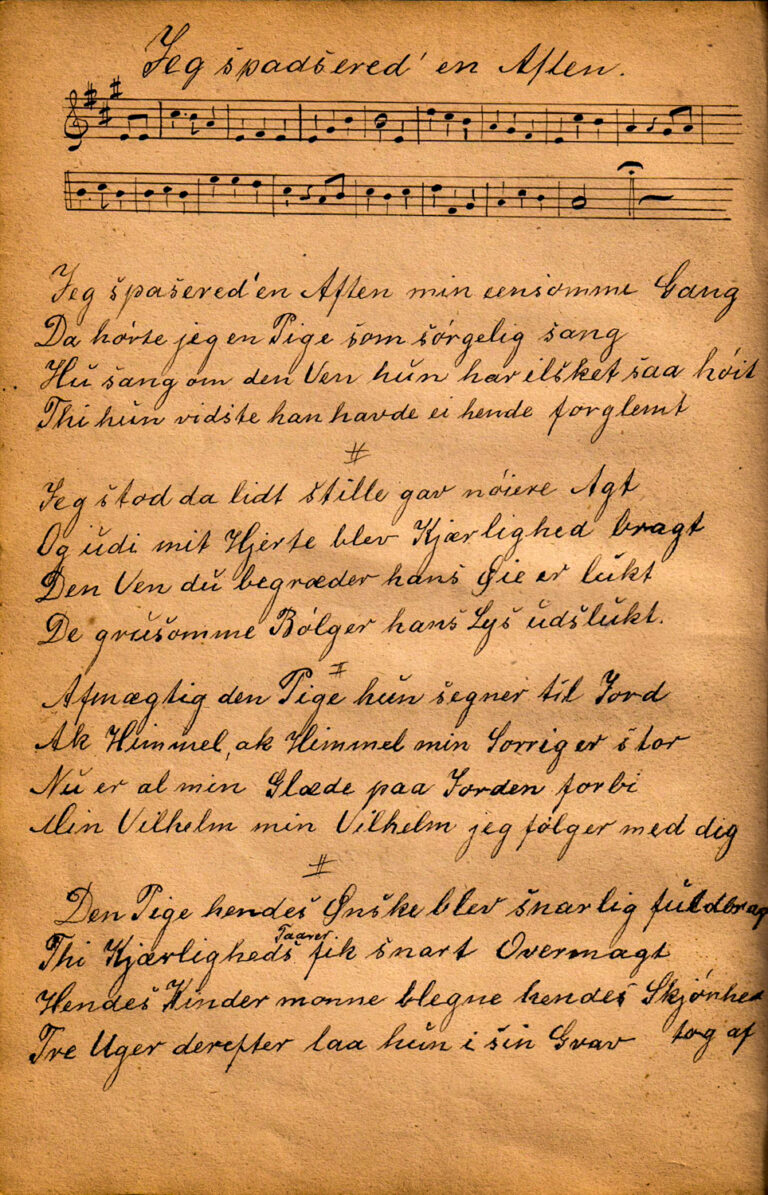 Jeg spadsered' en Aften.
Jeg spasered' en Aften min eensomme Gang
Da hørte jeg en Pige som sørgelig sang
Hu sang om den Ven hun har elsket saa høit
Thi hun vidste han havde ei hende forglemt
Jeg stod da lidt stille gav nøiere Agt
Og udi mit Hjerte blev Kjærlighed bragt
Den Ven du begræder hans Øie er lukt
De grusomme Bølger hans Lys udslukt.
Afmægtig den Pige hun segner til Jord
Ak Himmel, ak Himmel min Sorrig er stor
Nu er al min Glæde paa Jorden forbi
Min Vilhelm min Vilhelm jeg følger med dig
Den Pige hendes Ønske blev snarlig fuldbrag
Taarer
Thi Kjærligheds fik snart Overmagt
Hendes Kinder monne blegne hendes Skjønhe
tog af
Tre Uger derefter laa hun i sin Grav